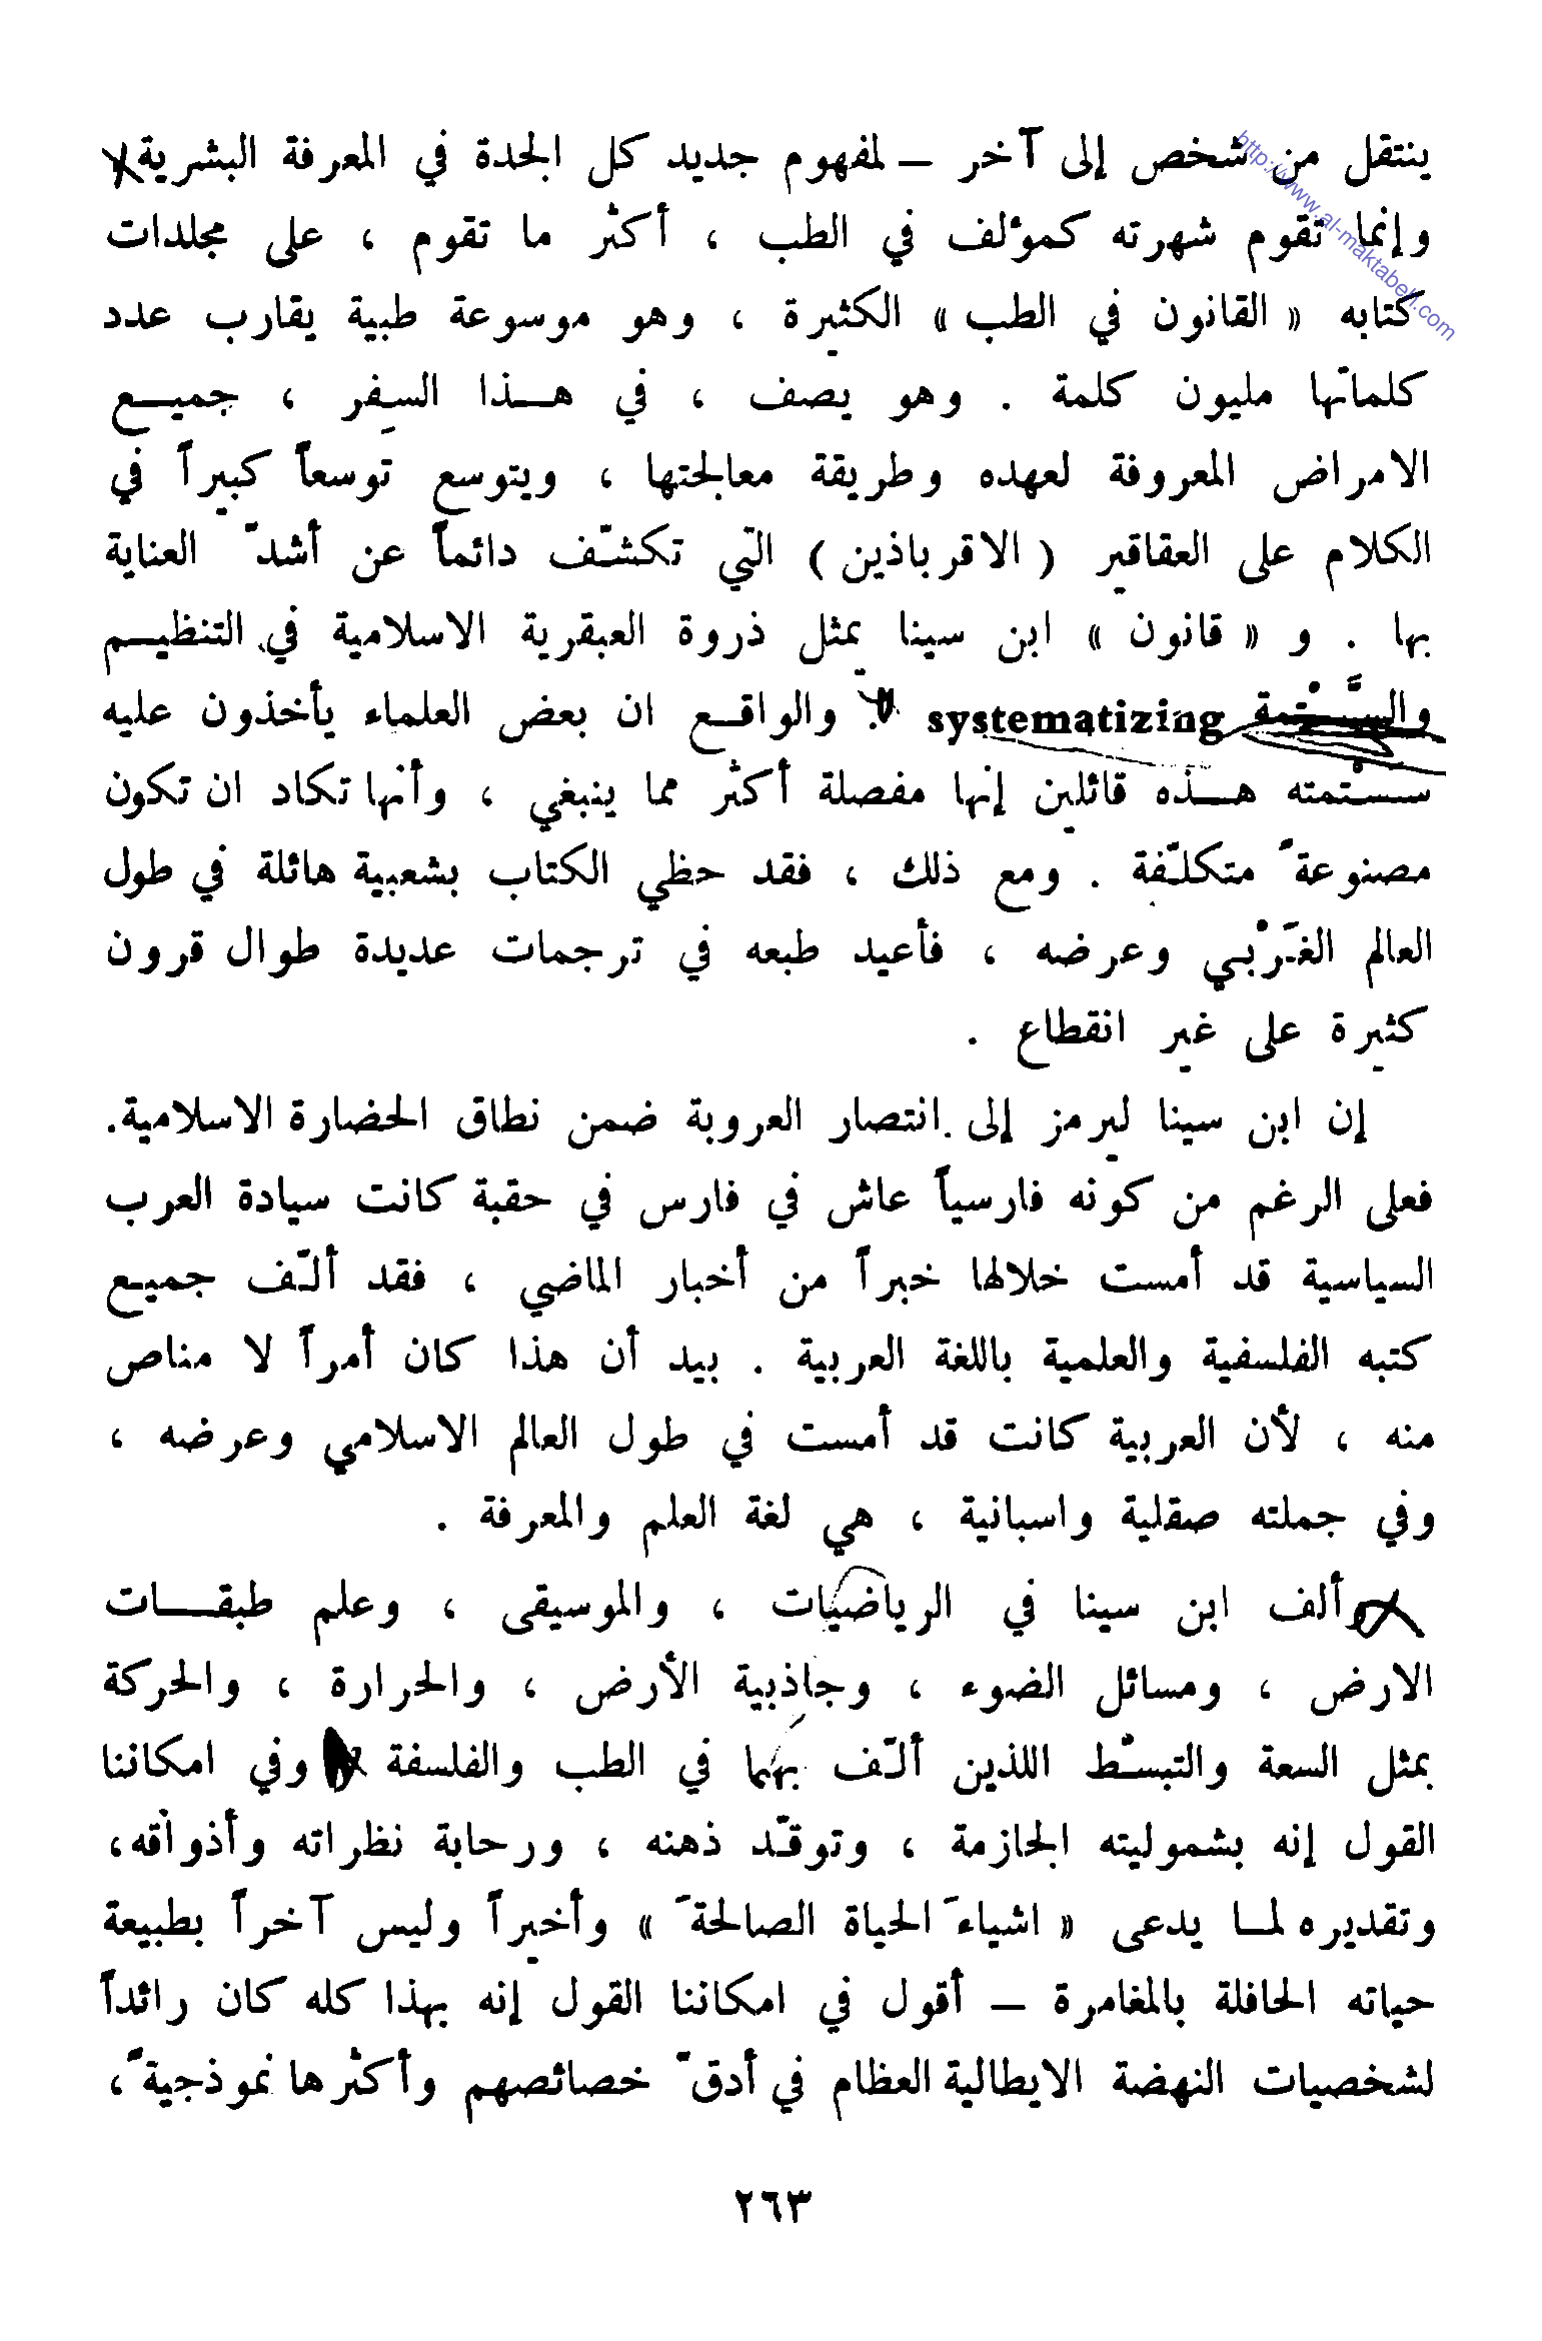 ينتقل من شخص إلى آخر – لمفهوم جديد كل الجدة في المعرفة البشرية
وإنما تقوم شهرته كمؤلف في الطب ، أكثر ما تقوم ، على مجلدات
كتابه « القانون في الطب » الكثيرة ، وهو موسوعة طبية يقارب عدد
كلماتها مليون كلمة . وهو يصف ، في هــذا السِفر ، جميــع
الامراض المعروفة لعهده وطريقة معالجتها ، ويتوسع توسعاً كبيراً في
الكلام على العقاقير ( الاقرباذين ) التي تكشّف دائماً عن أشدّ العناية
بها . و « قانون » ابن سينا يمثل ذروة العبقرية الاسلامية في التنظيــم
والسَّسْتمة systematizing . والواقــع ان بعض العلماء يأخذون عليه
سسْتمته هــذه قائلين إنها مفصلة أكثر مما ينبغي ، وأنها تكاد ان تكون
مصنوعةً متكلّفة . ومع ذلك ، فقد حظي الكتاب بشعبية هائلة في طول
العالم الغَرْبي وعرضه ، فأعيد طبعه في ترجمات عديدة طوال قرون
كثيرة على غير انقطاع .
إن ابن سينا ليرمز إلى انتصار العروبة ضمن نطاق الحضارة الاسلامية.
فعلى الرغم من كونه فارسياً عاش في فارس في حقبة كانت سيادة العرب
السياسية قد أمست خلالها خبراً من أخبار الماضي ، فقد ألّف جميـع
كتبه الفلسفية والعلمية باللغة العربية . بيد أن هذا كان أمراً لا مناص
منه ، لأن العربية كانت قد أمست في طول العالم الاسلامي وعرضه ،
وفي جملته صقلية واسبانية ، هي لغة العلم والمعرفة .
وألف ابن سينا في الرياضيات ، والموسيقى ، وعلم طبقــات
الارض ، ومسائل الضوء ، وجاذبية الأرض ، والحرارة ، والحركة
بمثل السعة والتبسّط اللذين ألّف بهما في الطب والفلسفة وفي امكاننا
القول إنه بشموليته الجازمة ، وتوقّد ذهنه ، ورحابة نظراته وأذواقه،
وتقديره لمـا يدعى « اشياءَ الحياة الصالحةَ » وأخيراً وليس آخراً بطبيعة
حياته الحافلة بالمغامرة – أقول في امكاننا القول إنه بهذا كله كان رائداً
لشخصيات النهضة الايطالية العظام في أدقّ خصائصهم وأكثرها نموذجيةً،
٢٦٣
http://www.al-maktabeh.com